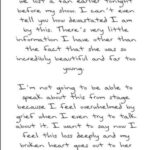 we lost a fan earlier tonight
before my show. I can't even
tell you how devastated I am
by this. There's very little
information I have other than
the fact that she was so
incredibly beautiful and far too
young.
I'm not going to be able to
speak about this from stage
because I feel overwhelmed by
grief when I even try to talk
about it. I want to say now I
feel this loss deeply and my
broken heart goes out to her